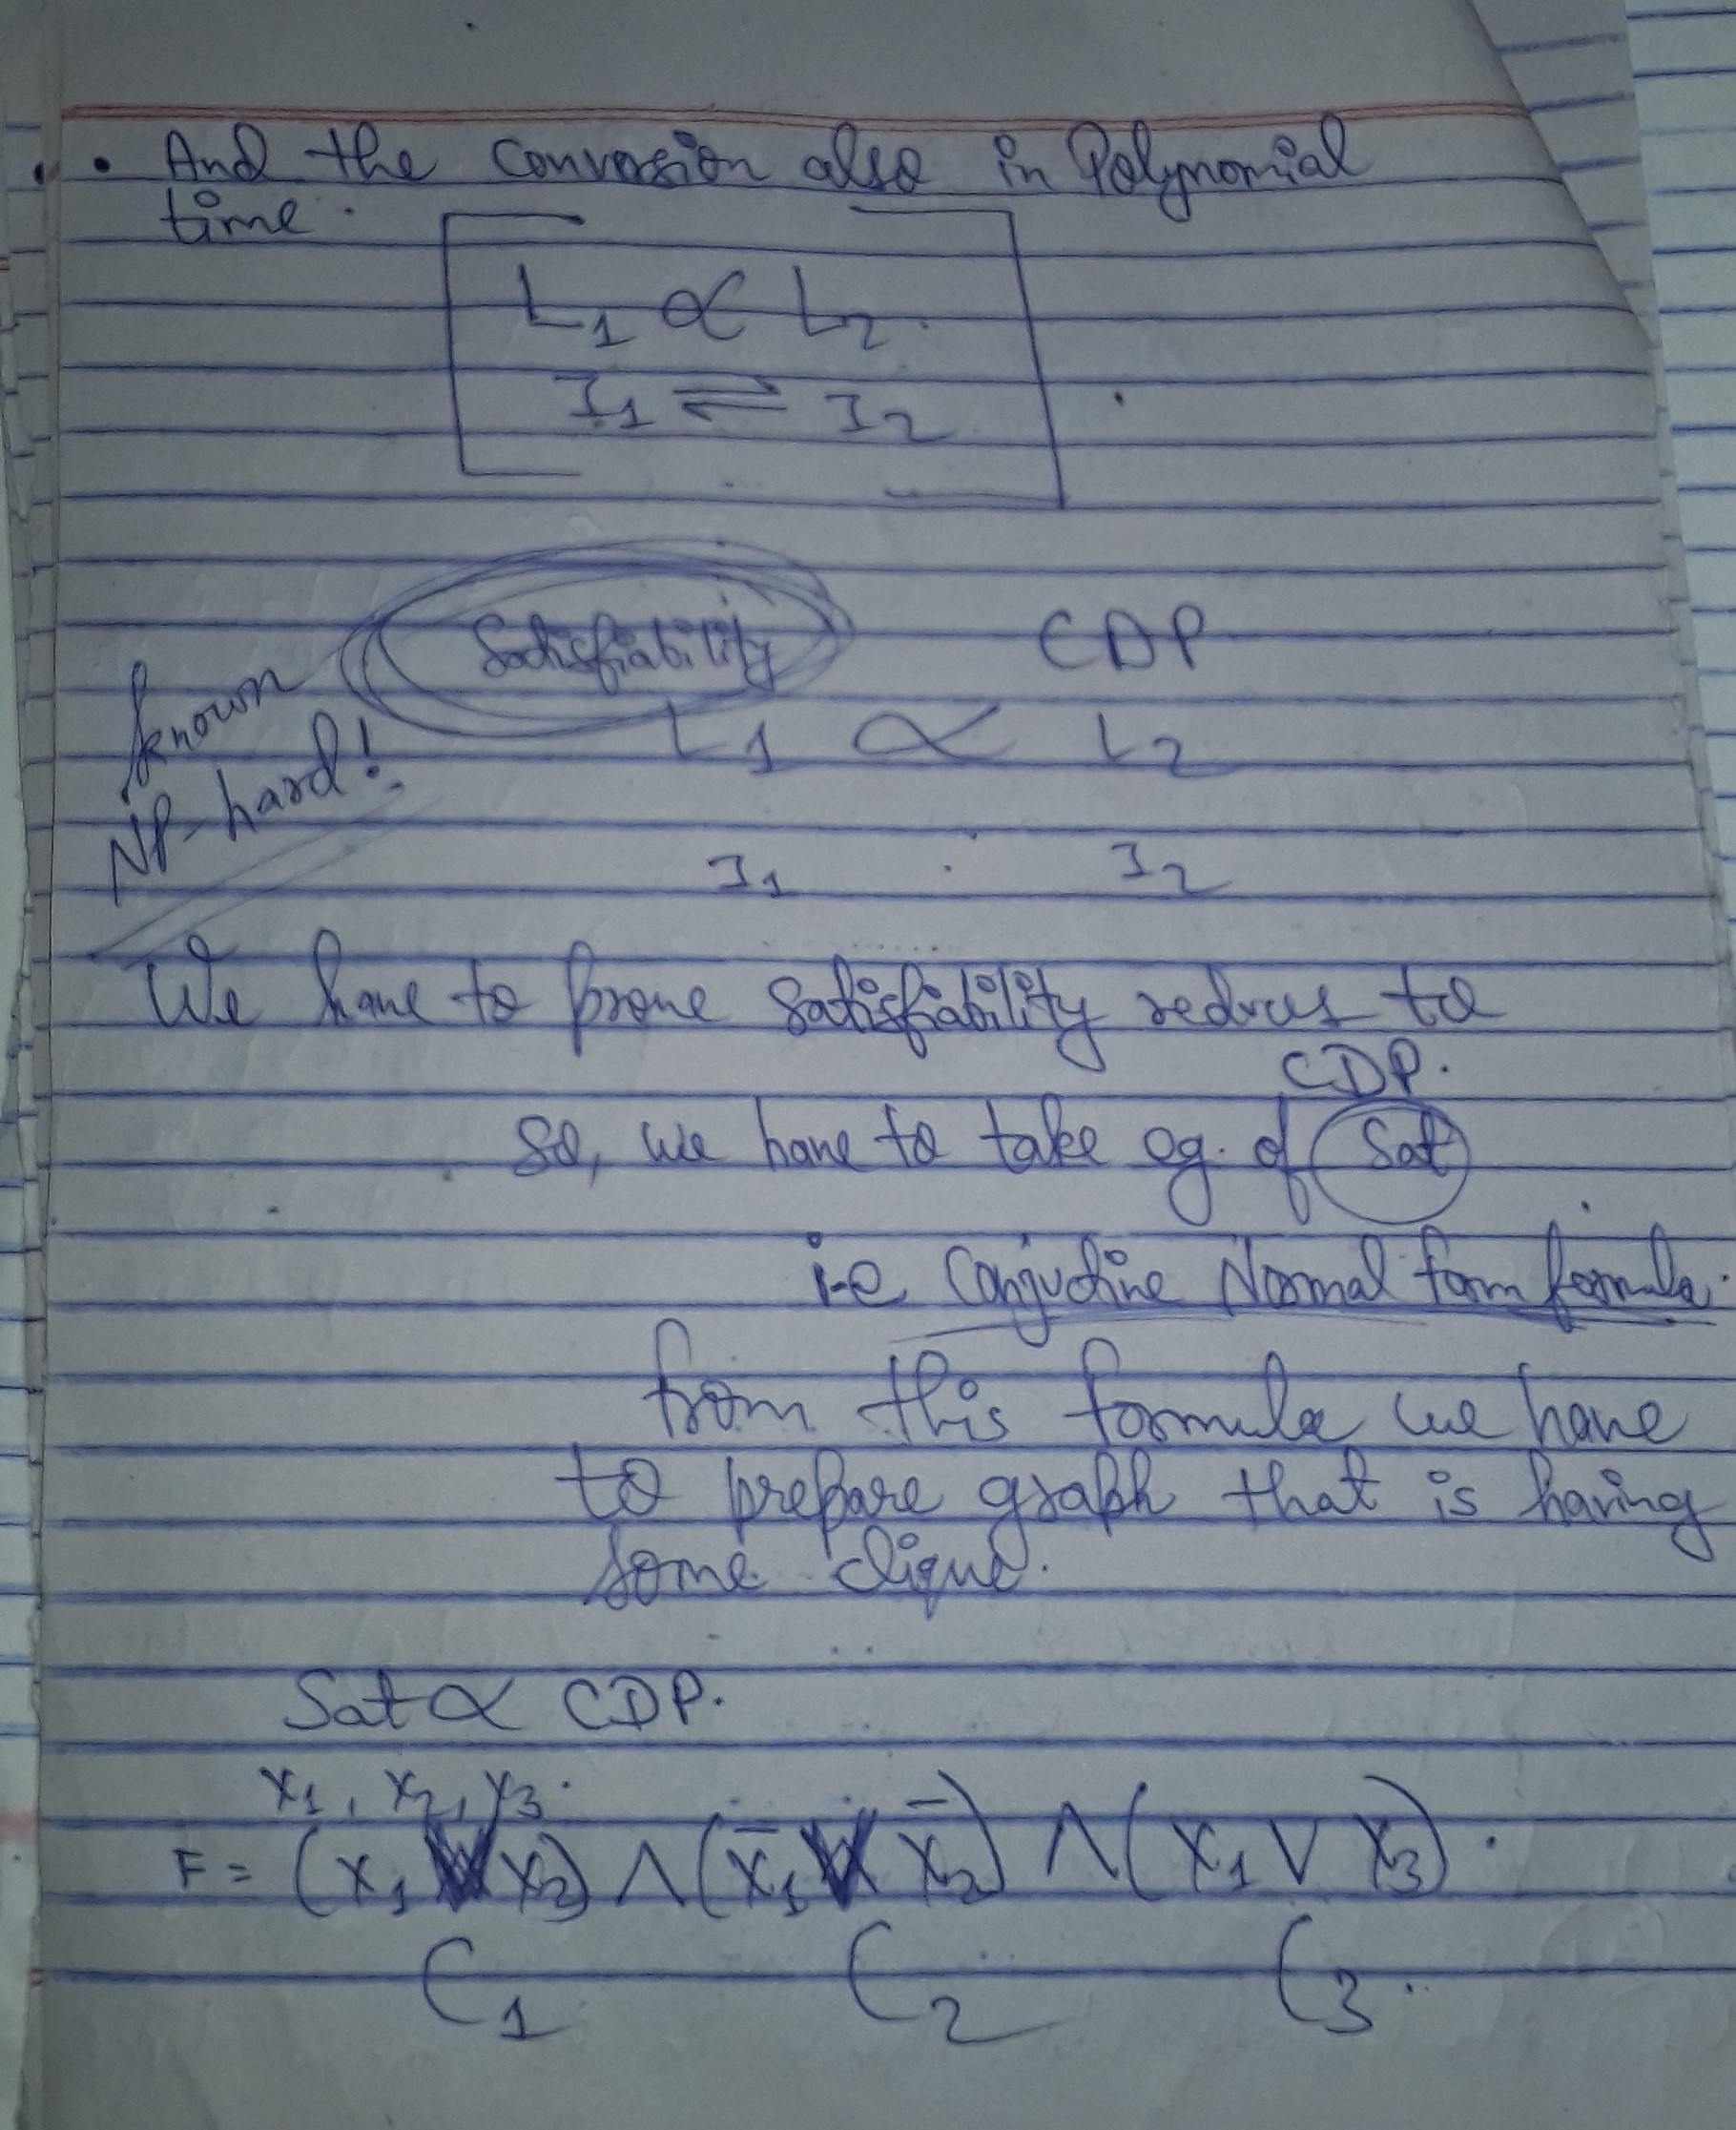 • And the conversion also in Polynomial
time.
L1 ∝ L2.
I1 ⇌ I2
Satisfiability CDP
known
NP-hard!
L1 ∝ L2
I1 I2
We have to prove Satisfiability reduces to
CDP.
So, we have to take eg. of Sat
i.e Conjuctive Normal form formula.
from this formula we have
to prepare graph that is having
some clique.
Sat ∝ CDP.
x1, x2, x3.
F = (x1 V x2) ∧ (x̄1 V x̄2) ∧ (x1 V x3).
C1 C2 C3.